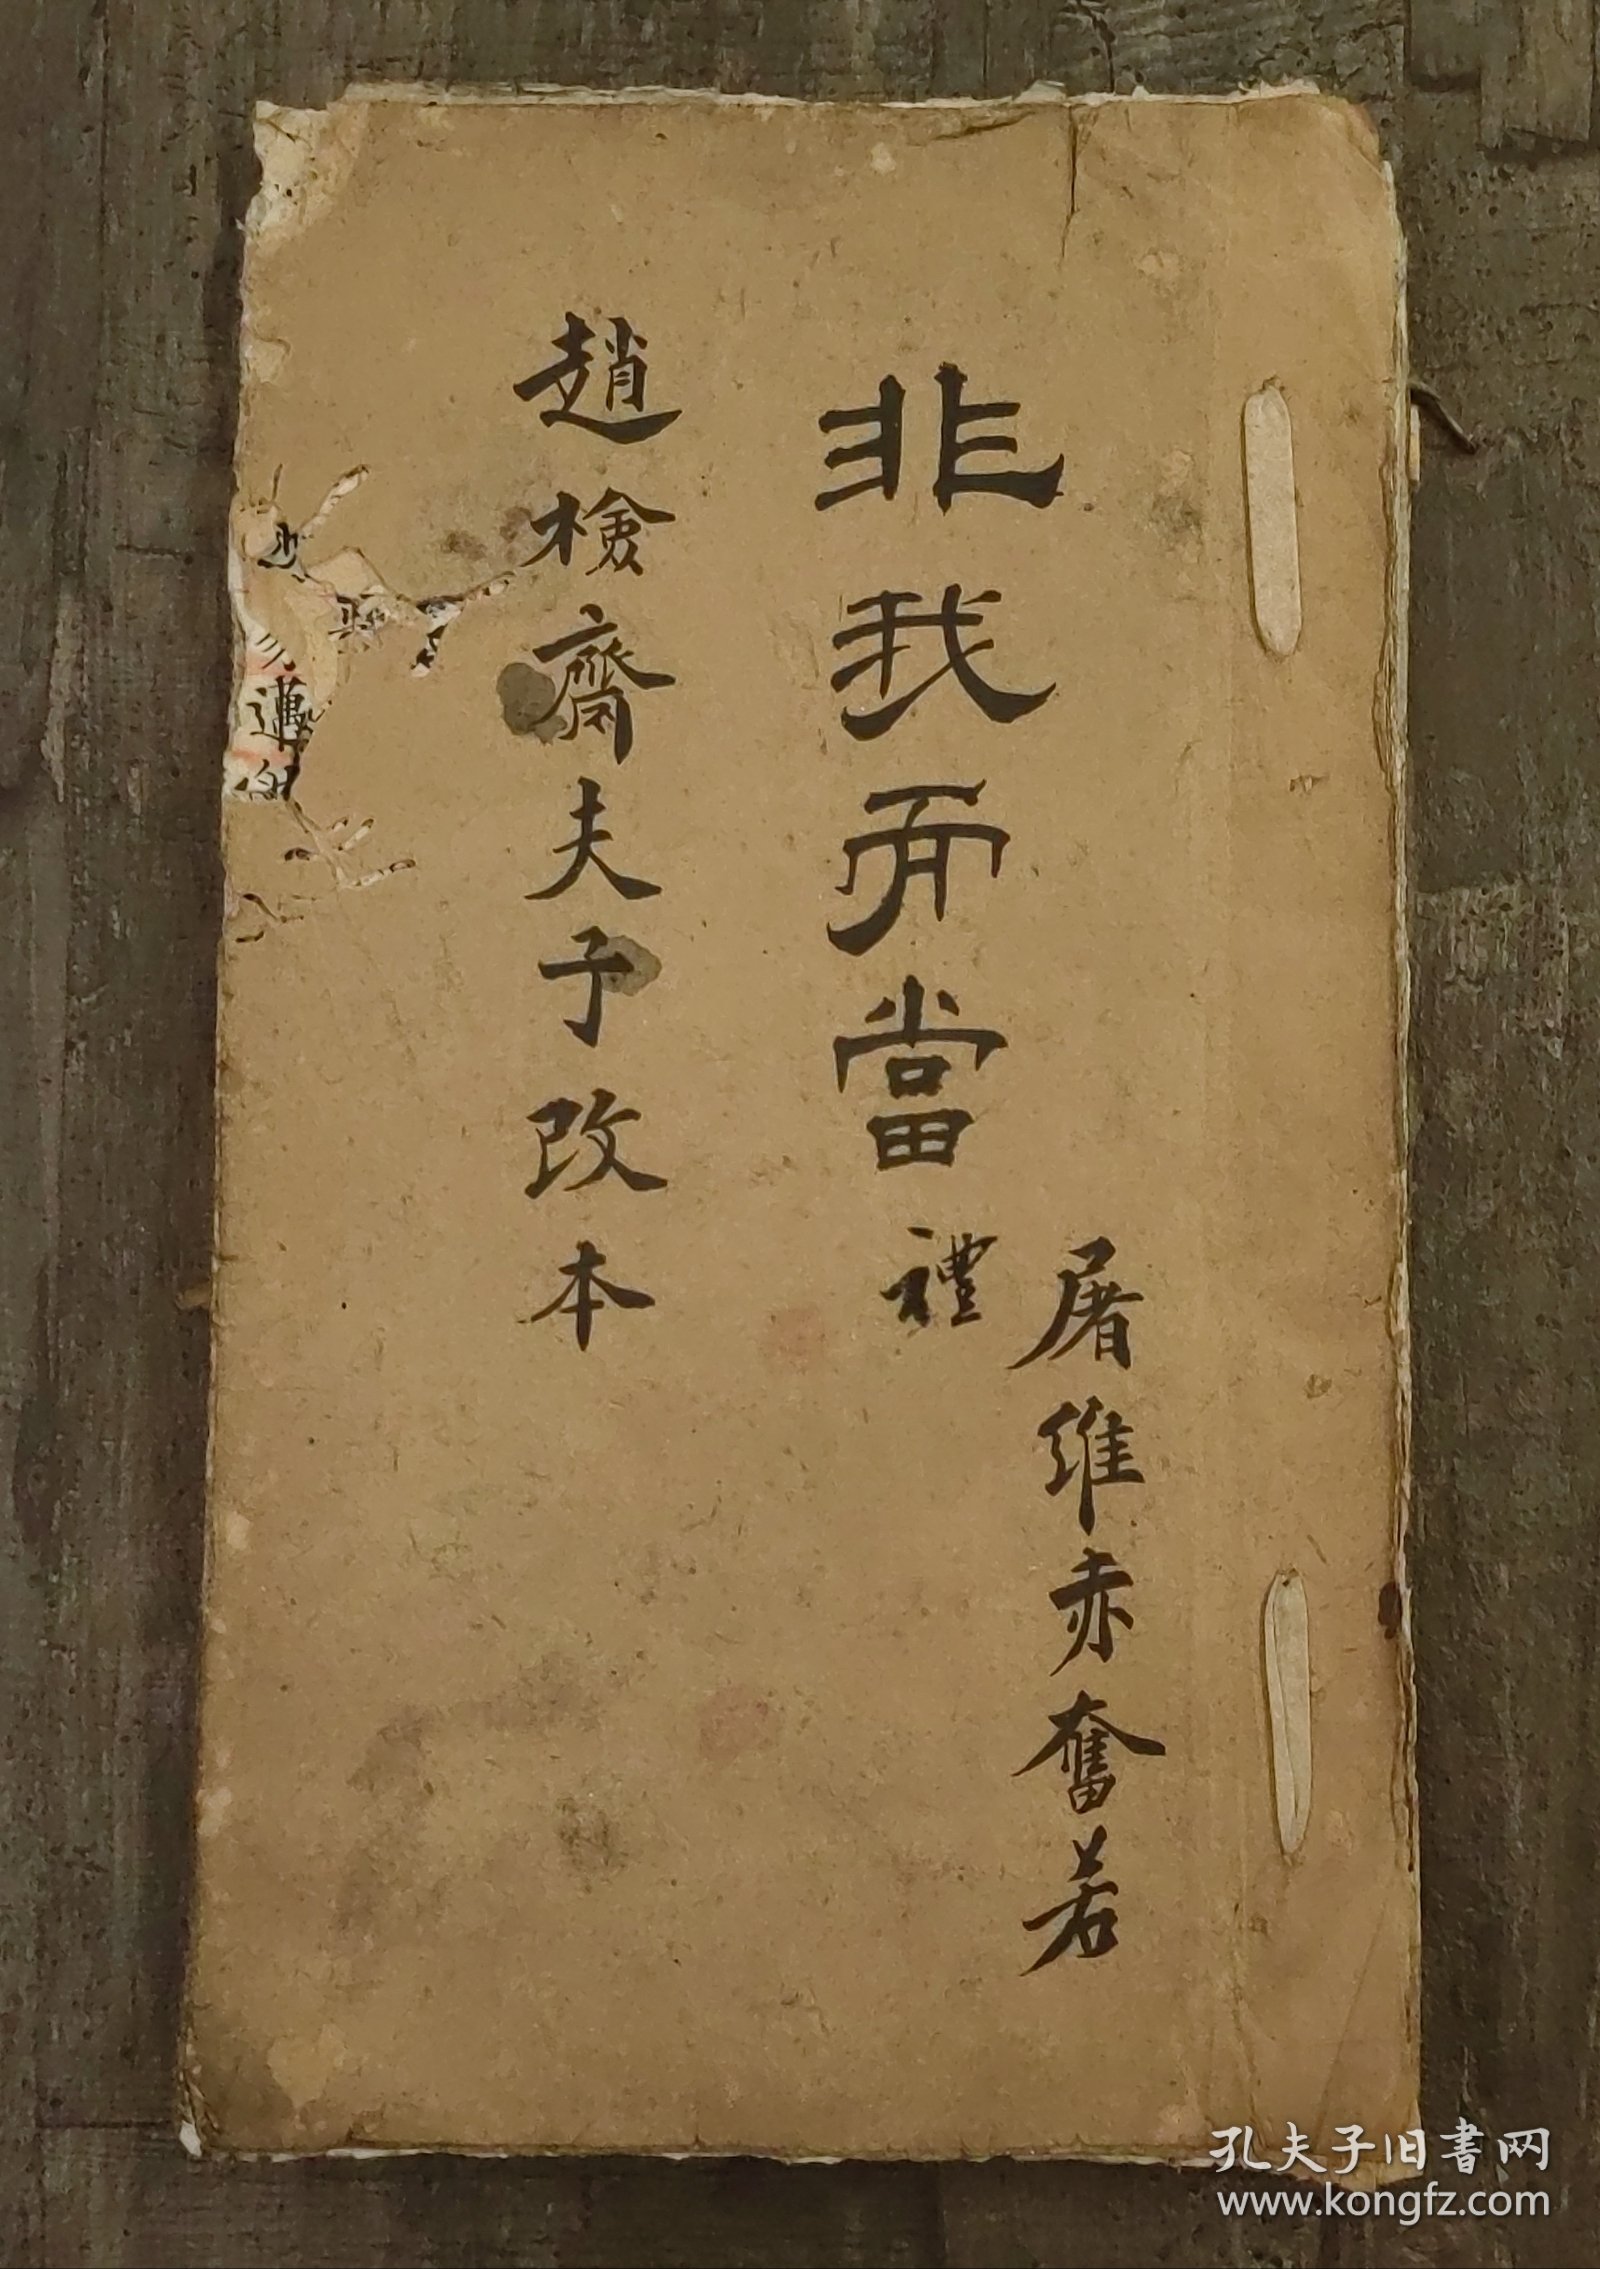 屠維赤奮若
非我而當
禮
趙檢齋夫子改本
邁
孔夫子旧書网
www.kongfz.com